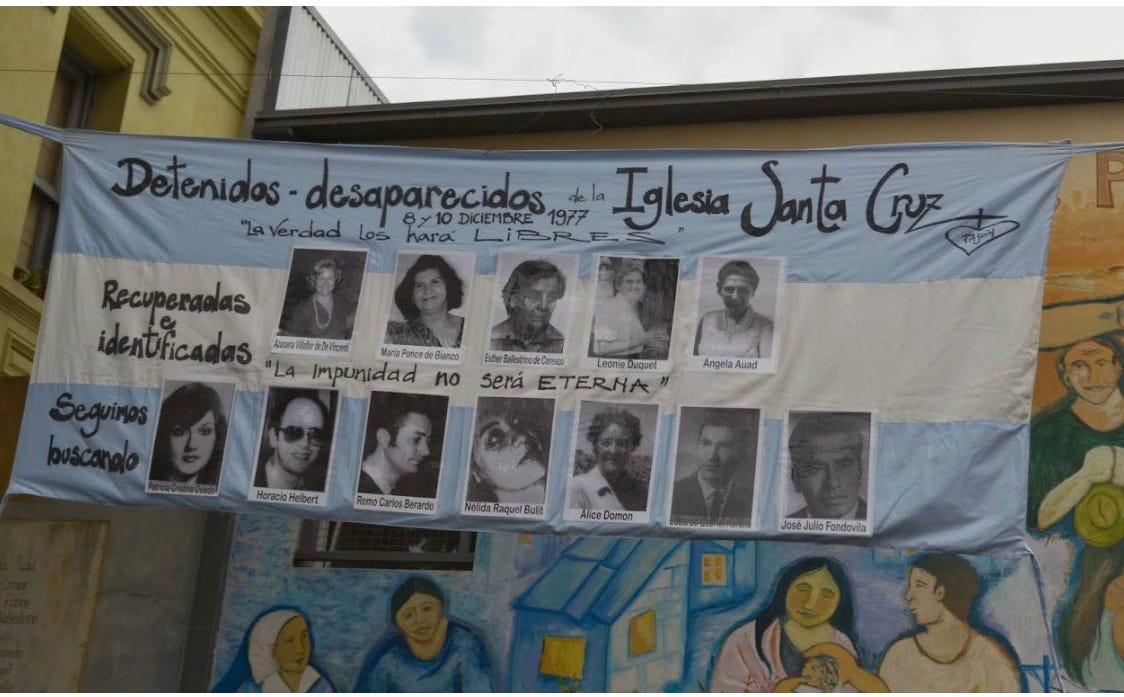 Detenidos - desaparecidos de la Iglesia Santa Cruz
8 y 10 DICIEMBRE 1977
"La Verdad los hará LIBRES"
Recuperadas
e
identificadas
Azucena Villaflor de De Vincenti
María Ponce de Bianco
Esther Ballestrino de Careaga
Leonie Duquet
Angela Auad
"La impunidad no será ETERNA"
Seguimos
buscando
Patricia Cristina Oviedo
Horacio Helbert
Remo Carlos Berardo
Nélida Raquel Bulit
Alice Domon
José Julio Fondovila
P